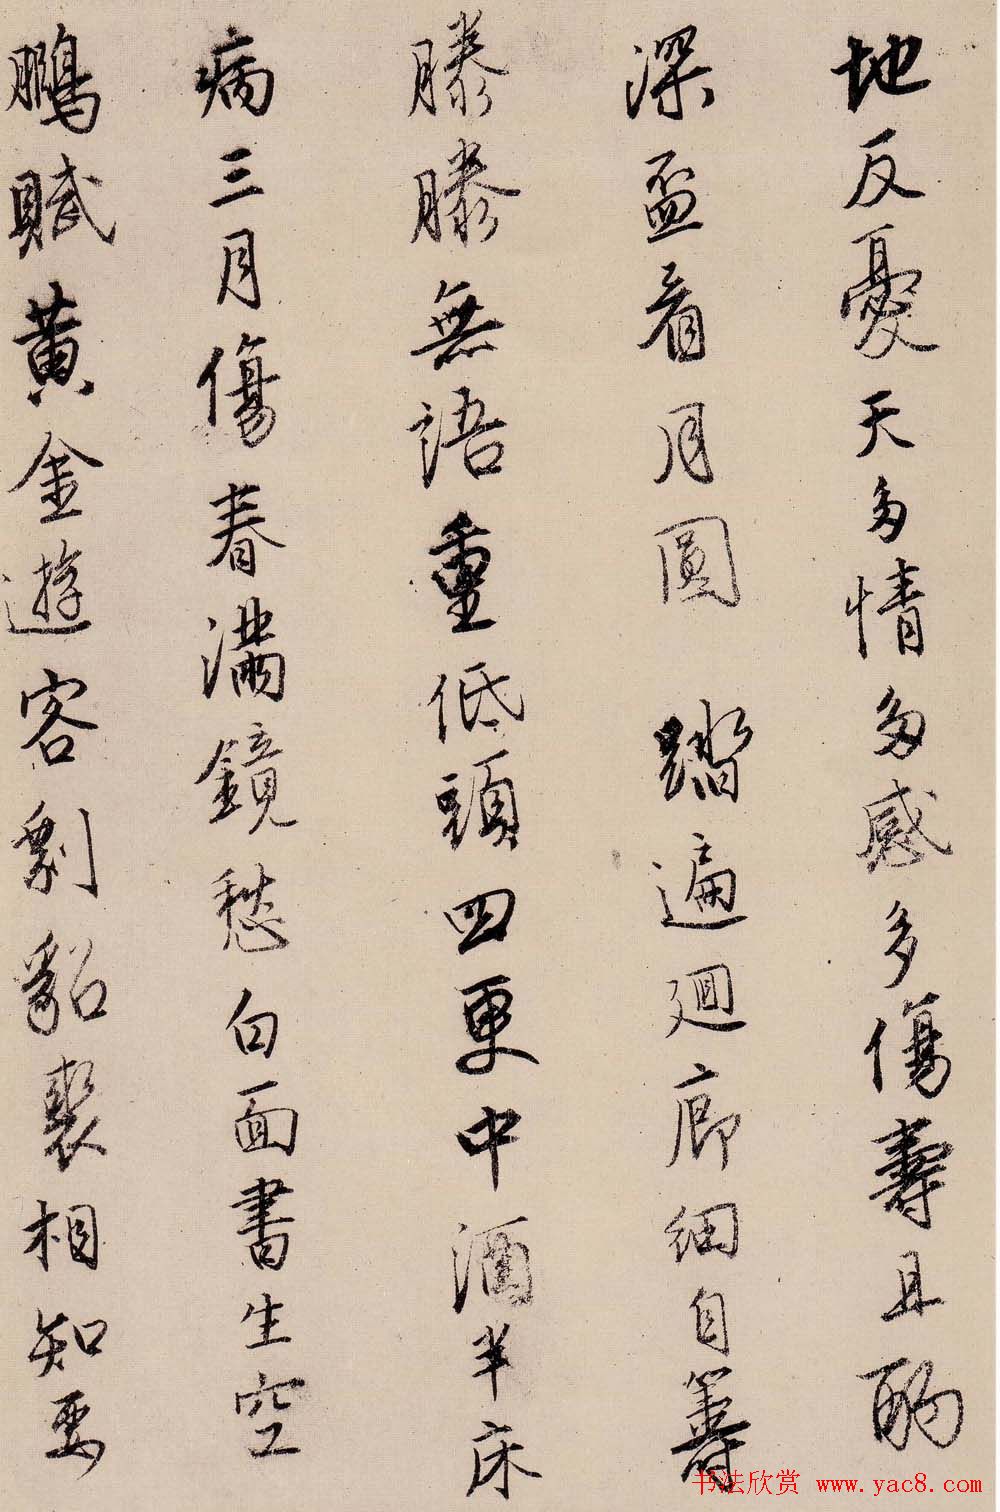 地反憂天多情多感多傷壽且酌
深盃看月圓　踏遍迴廊細自籌
滕滕無語重低頭四更中酒半床
病三月傷春滿鏡愁白面書生空
鵩賦黃金遊客剩貂裘相知要
书法欣赏 www.yac8.com